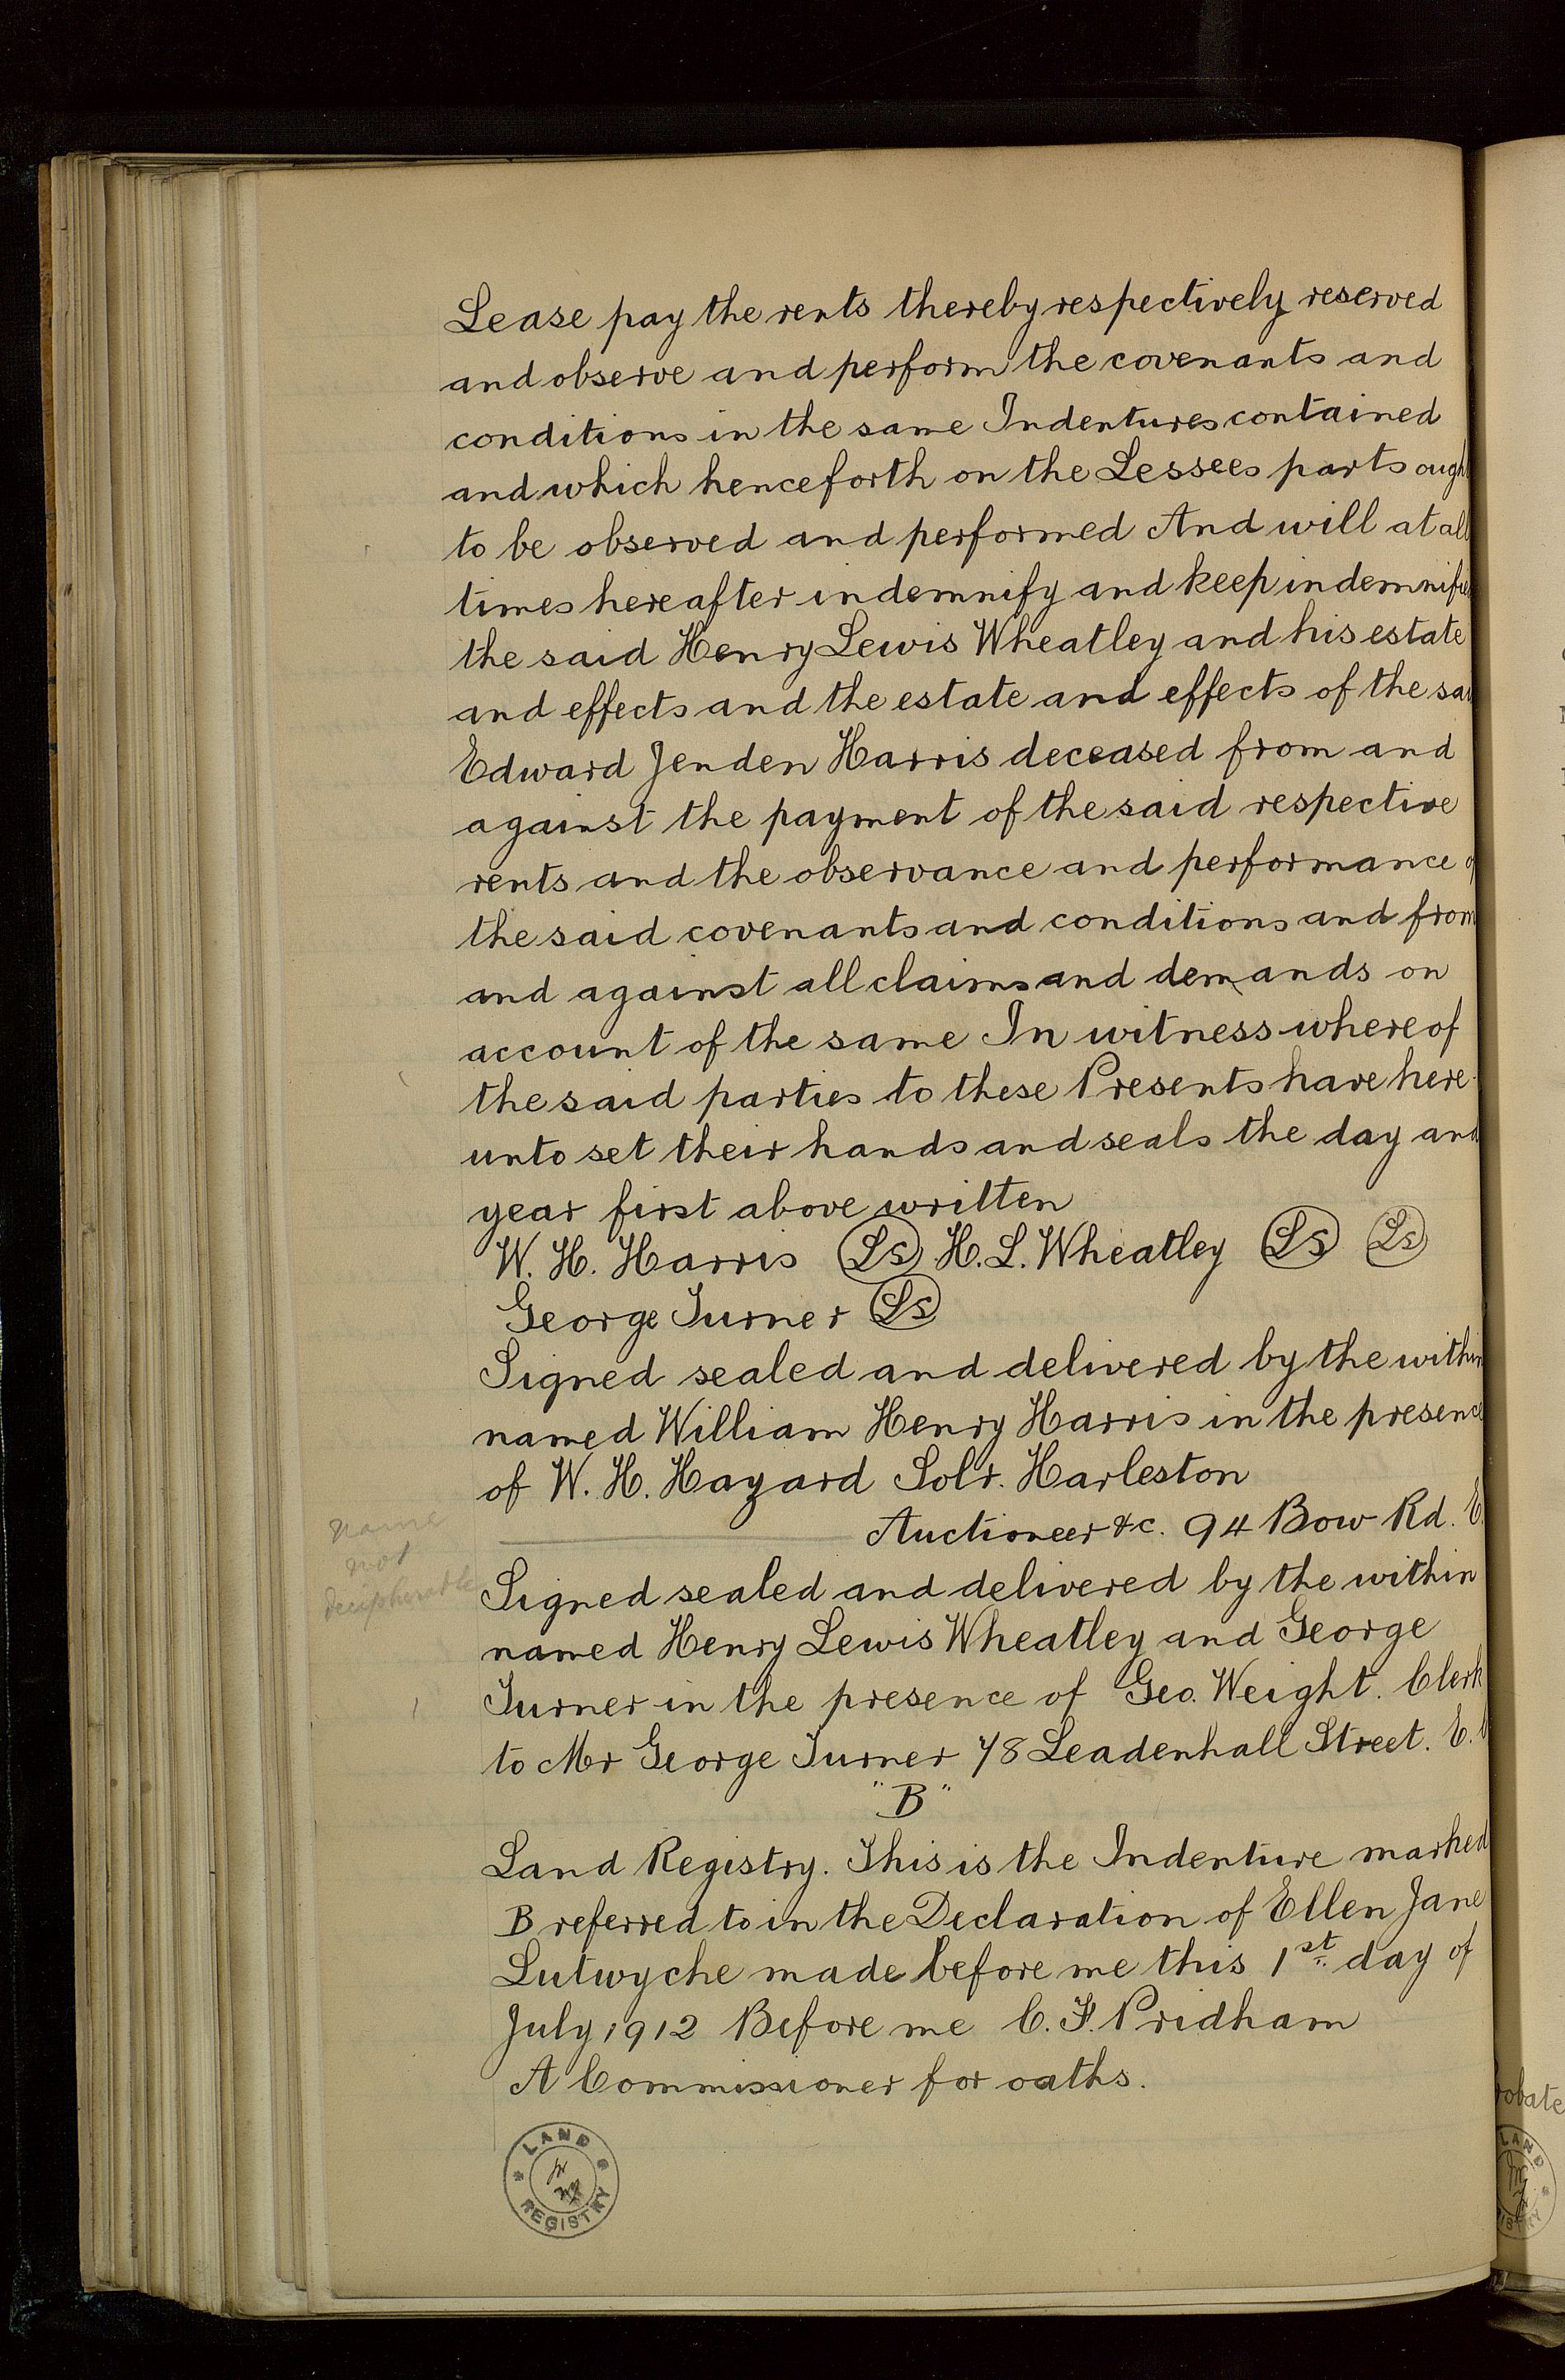 Lease pay the rents thereby respectively reserved
and observe and perform the covenants and
conditions in the same Indentures contained
and which henceforth on the Lessees parts ough
to be observed and performed And will at all
times hereafter indemnify and keep indemnifie
the said Henry Lewis Wheatley and his estate
and effects and the estate and effects of the sa
Edward Jenden Harris deceased from and
against the payment of the said respective
rents and the observance and performance o
the said covenants and conditions and from
and against all claims and demands on
account of the same In witness whereof
the said parties to these Presents have here-
unto set their hands and seals the day and
year first above written
W. H. Harris Ls H. L. Wheatley Ls Ls
George Turner Ls
Signed sealed and delivered by the within
named William Henry Harris in the presence
of W. H. Hazard Solr. Harleston
Auctioneer &c. 94 Bow Rd. E.
name
not
decipherable
Signed sealed and delivered by the within
named Henry Lewis Wheatley and George
Turner in the presence of Geo. Weight. Clerk
to Mr George Turner 78 Leadenhall Street. E.
"B"
Land Registry. This is the Indenture marked
B referred to in the Declaration of Ellen Jane
Lutwyche made before me this 1st day of
July 1912 Before me C. F. Pridham
A Commissioner for oaths.
LAND
REGISTRY
robate
LAND